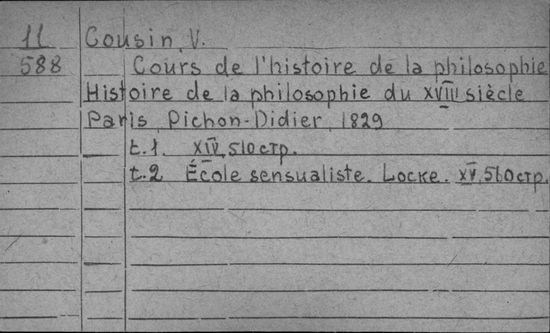 11 Cousin, V.
588 Cours de l'histoire de la philosophie
Histoire de la philosophie du XVIII siècle
Paris, Pichon-Didier, 1829
t.1. XIV, 510 стр.
t.2 École sensualiste. Locke. XV, 560 стр.